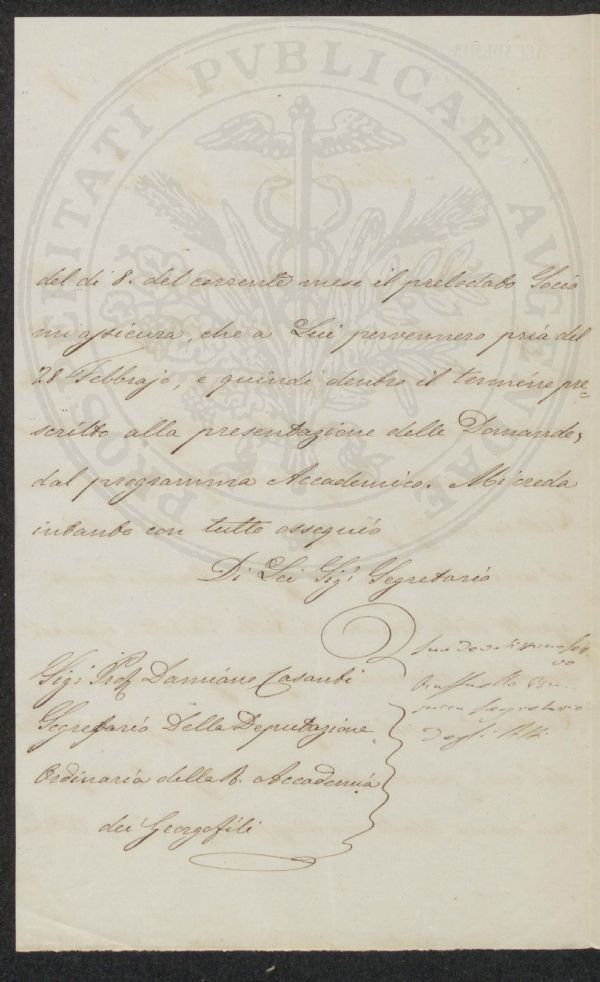 PROSPERITATI PVBLICAE AVGENDAE
del di 8. del corrente mese il prelodato Socio
mi assicura, che a Lui pervennero pria del
28 Febbrajo, e quindi dentro il termine pre=
scritto alla presentazione delle Domande,
dal programma Accademico. Mi creda
intanto con tutto ossequio
Di Lei Sigr Segretario
Segretario
degli
Sigr Prof Damiano Casanti
Segretario Della Deputazione
Ordinaria della R. Accademia
dei Georgofili